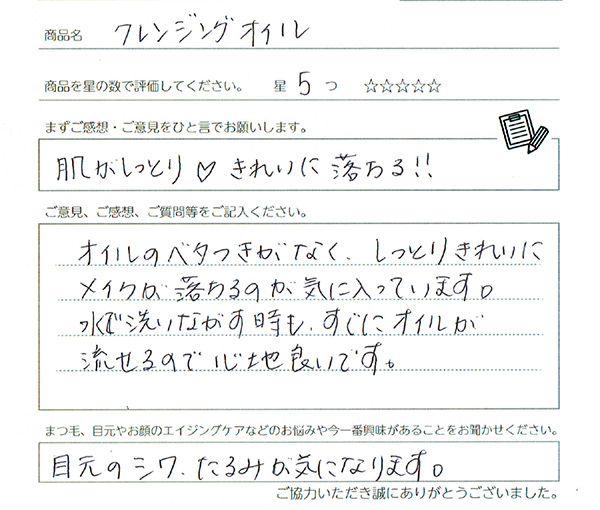 商品名 クレンジングオイル
商品を星の数で評価してください。 星 5 つ ☆☆☆☆☆
まずご感想・ご意見をひと言でお願いします。
肌がしっとり♡きれいに落ちる!!
ご意見、ご感想、ご質問等をご記入ください。
オイルのベタつきがなく、しっとりきれいに
メイクが落ちるのが気に入っています。
水で洗いながす時も、すぐにオイルが
流せるので心地良いです。
まつ毛、目元やお顔のエイジングケアなどのお悩みや今一番興味があることをお聞かせください。
目元のシワ、たるみが気になります。
ご協力いただき誠にありがとうございました。